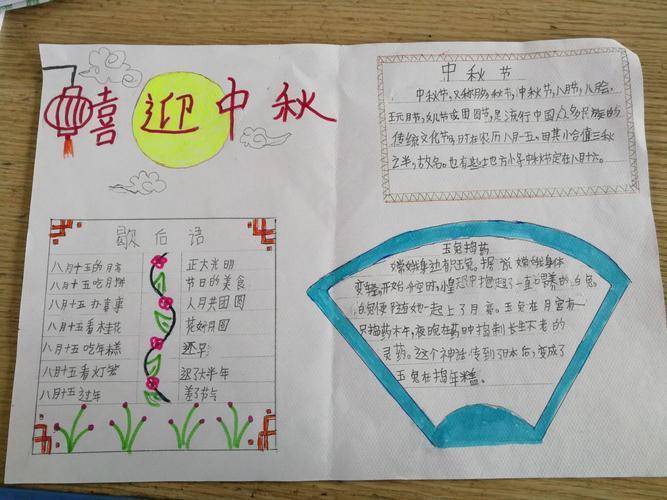 喜迎中秋
中秋节
中秋节,又称月夕,秋节,中秋节,八月节,八月会,
玩月节,女儿节或团圆节,是流行中国众多民族的
传统文化节,时在农历八月十五。因其恰值三秋
之半,故名。也有些地方将中秋节定在八月十六。
歇后语
八月十五的月亮 正大光明
八月十五吃月饼 节日的美食
八月十五办喜事 人月共团圆
八月十五看桂花 花好月圆
八月十五吃年糕 还早
八月十五看灯笼 迟了大半年
八月十五过年 差了节气
玉兔捣药
嫦娥身边有玉兔。据说嫦娥身体
变轻,开始升空时,惶恐中抱起了一直喂养的白兔。
白兔便随她一起上了月亮。玉兔在月宫有一
只捣药杵,夜晚在药中捣制长生不老的
灵药。这个神话传到日本后,变成了
玉兔在捣年糕。